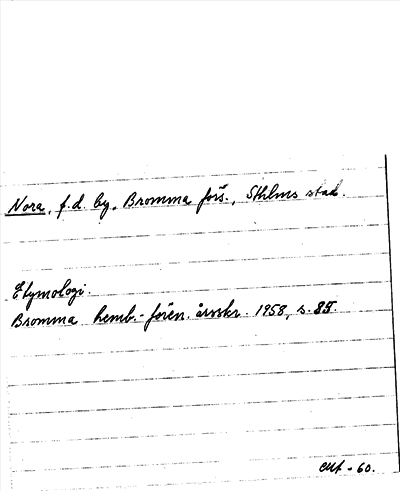 Nora, f.d. by, Bromma förs., Sthlms stad.
Etymologi.
Bromma hemb.-fören. årsskr. 1958, s. 85.
-60.